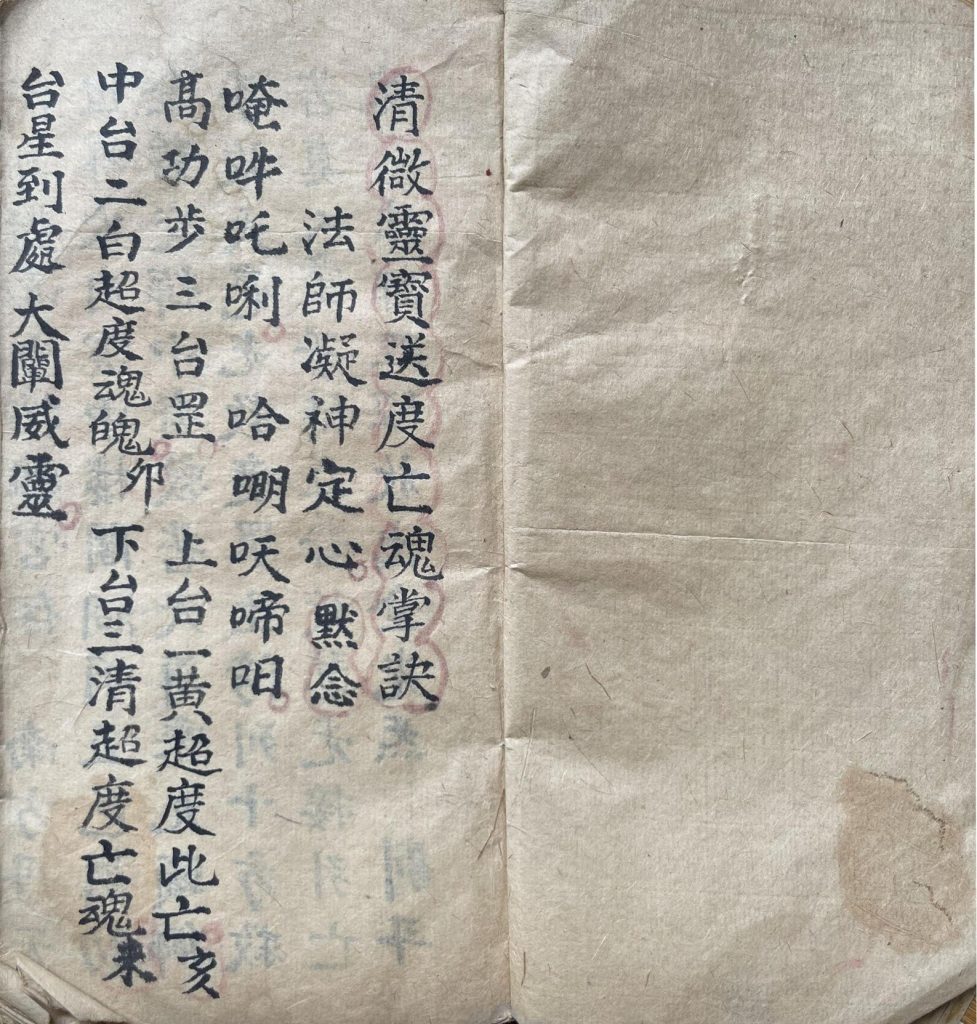 清微靈寶送度亡魂掌訣
法師凝神定心。默念
唵吽吒唎。哈𠺖㕭啼呬。
髙功步三台罡。上台一黄超度此亡亥
中台二白超度魂魄卯下台三清超度亡魂未
台星到處大闡威靈。